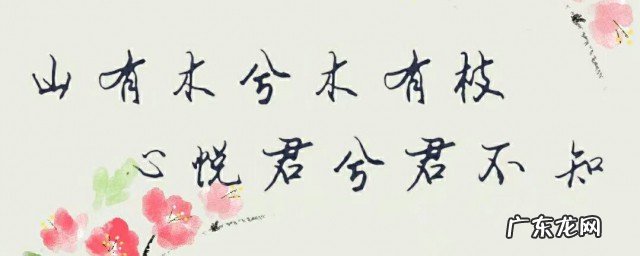 山有木兮木有枝
心悦君兮君不知
广东龙网